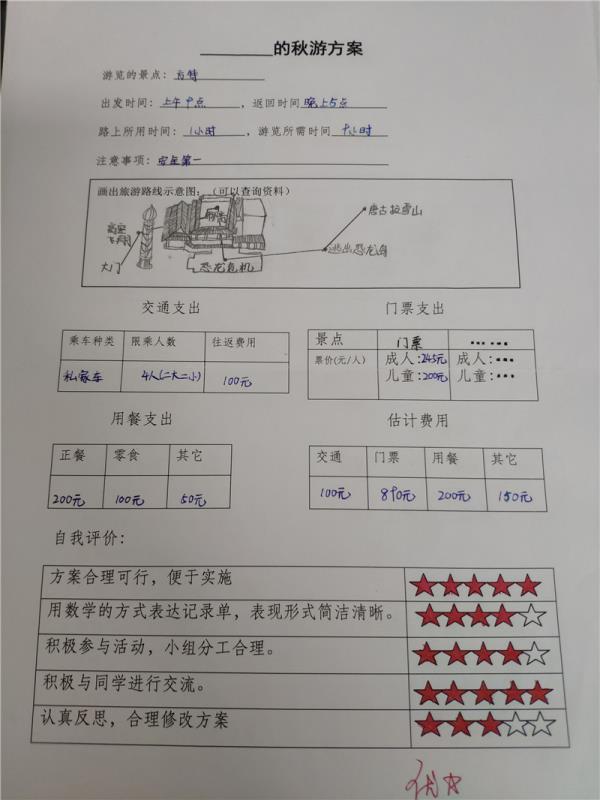 的秋游方案
游览的景点：方特
出发时间：上午9点，返回时间晚上5点
路上所用时间：1小时，游览所需时间 7小时
注意事项：安全第一
画出旅游路线示意图：（可以查询资料）
唐古拉雪山
飞翔
逃出恐龙岛
大门
恐龙危机
交通支出 门票支出
乘车种类 限乘人数 往返费用
私家车 4人(二大二小) 100元
景点 门票 ……
票价(元/人) 成人：245元 成人：…
儿童：200元 儿童：…
用餐支出 估计费用
正餐 零食 其它
200元 100元 50元
交通 门票 用餐 其它
100元 890元 200元 150元
自我评价：
方案合理可行，便于实施
用数学的方式表达记录单，表现形式简洁清晰。
积极参与活动，小组分工合理。
积极与同学进行交流。
认真反思，合理修改方案
优